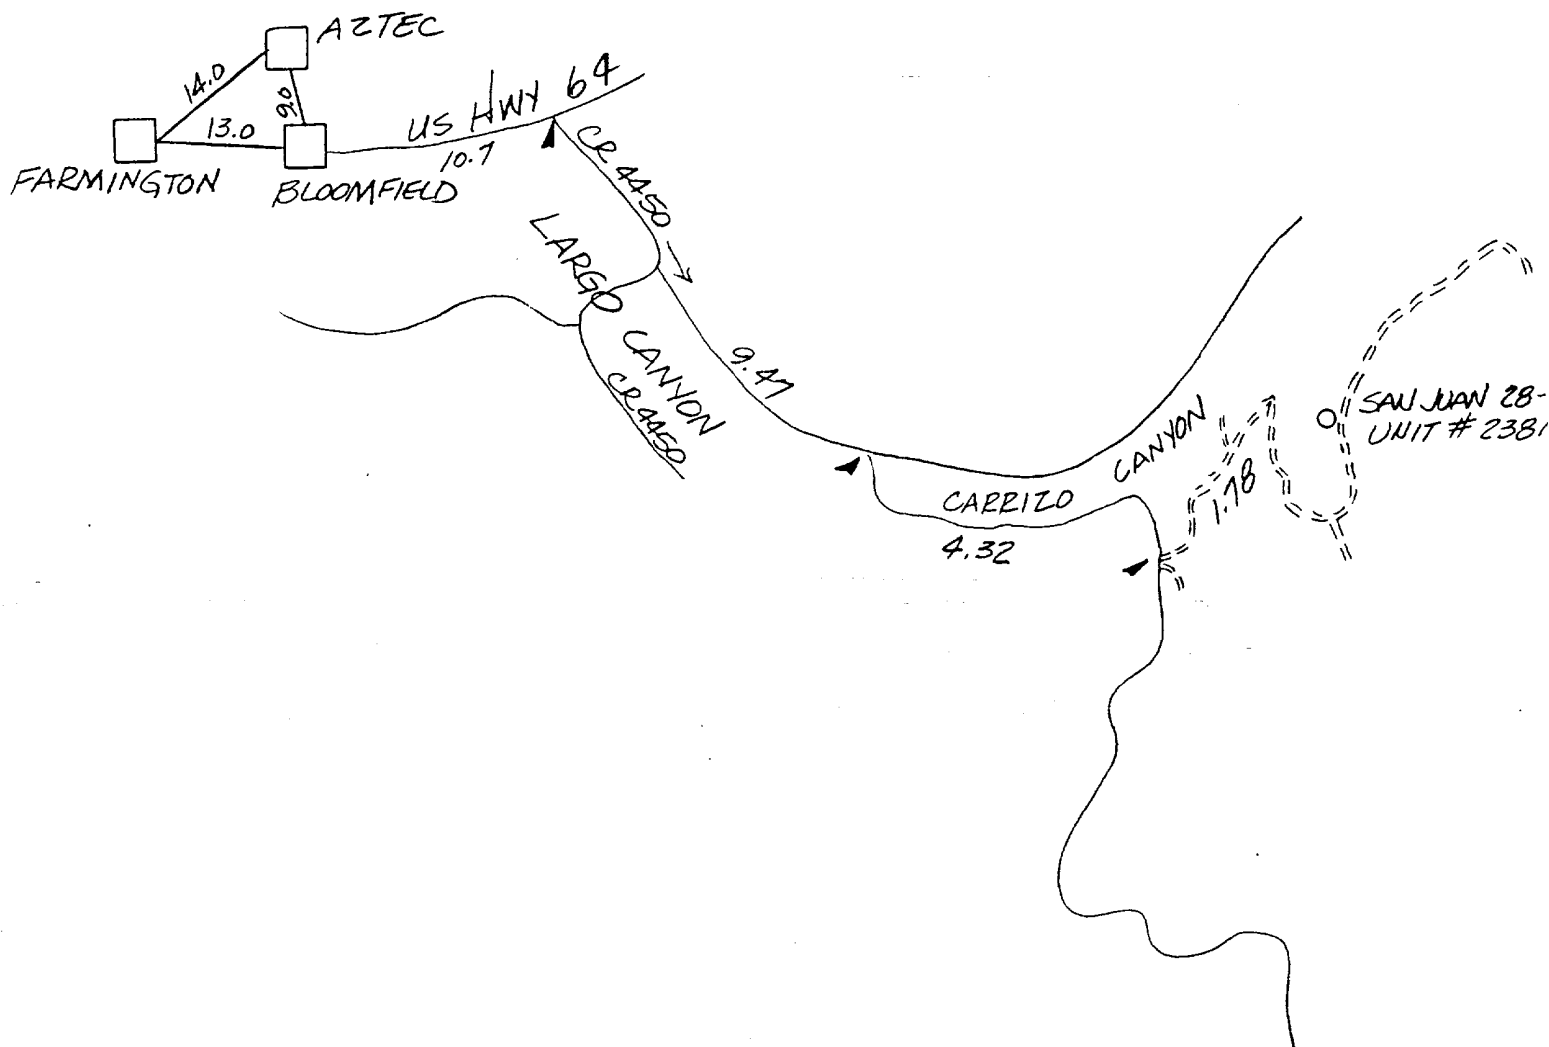 AZTEC
14.0
9.0
13.0
FARMINGTON
BLOOMFIELD
US HWY 64
10.7
CR 4450
LARGO CANYON
CR 4450
9.47
CARRIZO CANYON
4.32
1.78
SAN JUAN 28-
UNIT # 238